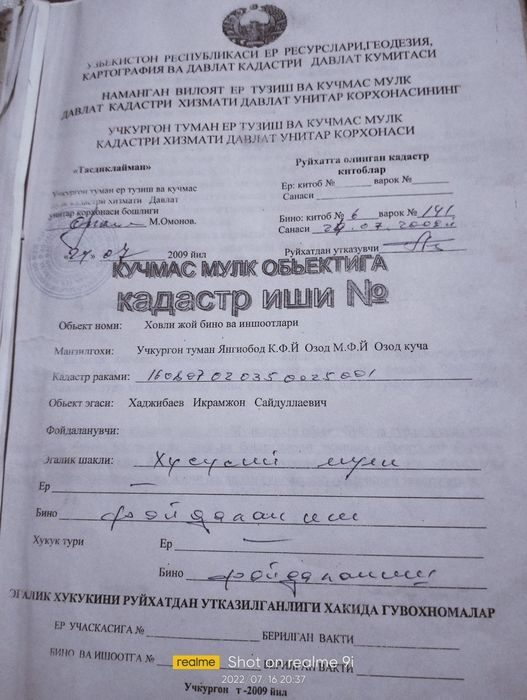 УЗБЕКИСТОН РЕСПУБЛИКАСИ ЕР РЕСУРСЛАРИ,ГЕОДЕЗИЯ,
КАРТОГРАФИЯ ВА ДАВЛАТ КАДАСТРИ ДАВЛАТ КУМИТАСИ
НАМАНГАН ВИЛОЯТ ЕР ТУЗИШ ВА КУЧМАС МУЛК
ДАВЛАТ КАДАСТРИ ХИЗМАТИ ДАВЛАТ УНИТАР КОРХОНАСИНИНГ
УЧКУРГОН ТУМАН ЕР ТУЗИШ ВА КУЧМАС МУЛК
КАДАСТРИ ХИЗМАТИ ДАВЛАТ УНИТАР КОРХОНАСИ
«Тасдиклайман»
Учкургон туман ер тузиш ва кучмас
мулк кадастри хизмати Давлат
унитар корхонаси бошлиги
М.Омонов.
07 2009 йил
Руйхатга олинган кадастр
китоблар
Ер: китоб № варок №
Санаси
Бино: китоб № 6 варок № 141
Санаси
Руйхатдан утказувчи
КУЧМАС МУЛК ОБЬЕКТИГА
кадастр иши №
Обьект номи: Ховли жой бино ва иншоотлари
Манзилгохи: Учкургон туман Янгиобод К.Ф.Й Озод М.Ф.Й Озод куча
Кадастр раками: 160807020350025001
Обьект эгаси: Хаджибаев Икрамжон Сайдуллаевич
Фойдаланувчи:
Эгалик шакли: Хусусий мулк
Ер —
Бино фойдаланиш
Хукук тури Ер —
Бино фойдаланиш
ЭГАЛИК ХУКУКИНИ РУЙХАТДАН УТКАЗИЛГАНЛИГИ ХАКИДА ГУВОХНОМАЛАР
ЕР УЧАСКАСИГА № БЕРИЛГАН ВАКТИ
БИНО ВА ИШООТГА № БЕРИЛГАН ВАКТИ
Учкургон т -2009 йил
realme Shot on realme 9i
2022.07.16 20:37